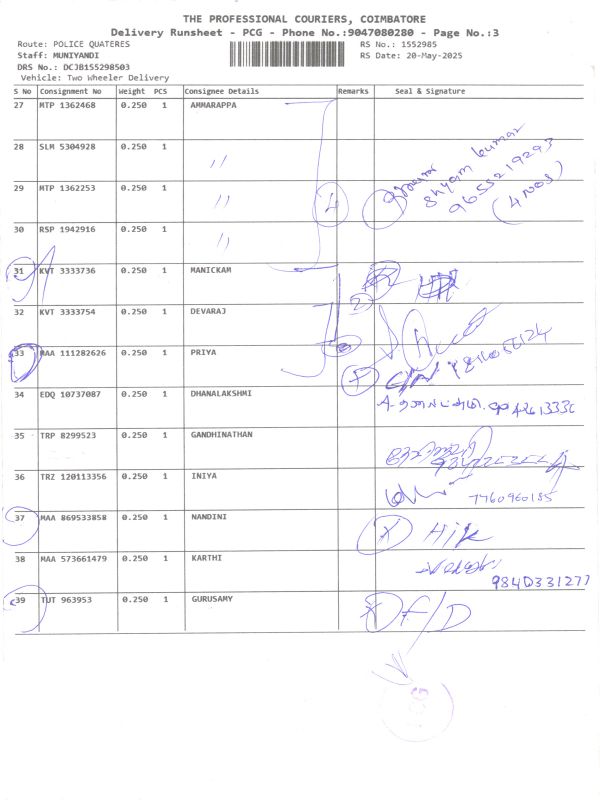 THE PROFESSIONAL COURIERS, COIMBATORE
Delivery Runsheet - PCG - Phone No.:9047080280 - Page No.:3
Route: POLICE QUATERES
RS No.: 1552985
Staff: MUNIYANDI
RS Date: 20-May-2025
DRS No.: DCJB155298503
Vehicle: Two Wheeler Delivery
S No Consignment No Weight PCS Consignee Details Remarks Seal & Signature
27 MTP 1362468 0.250 1 AMMARAPPA
28 SLM 5304928 0.250 1 〃
Shyam kumar
9655219293
(4 NOS)
29 MTP 1362253 0.250 1 〃 4
30 RSP 1942916 0.250 1 〃
31 KVT 3333736 0.250 1 MANICKAM
2
32 KVT 3333754 0.250 1 DEVARAJ
33 MAA 111282626 0.250 1 PRIYA
34 EDQ 10737087 0.250 1 DHANALAKSHMI
35 TRP 8299523 0.250 1 GANDHINATHAN
36 TRZ 120113356 0.250 1 INIYA
7760960185
37 MAA 869533858 0.250 1 NANDINI X
38 MAA 573661479 0.250 1 KARTHI
9840331277
39 TUT 963953 0.250 1 GURUSAMY X F/D